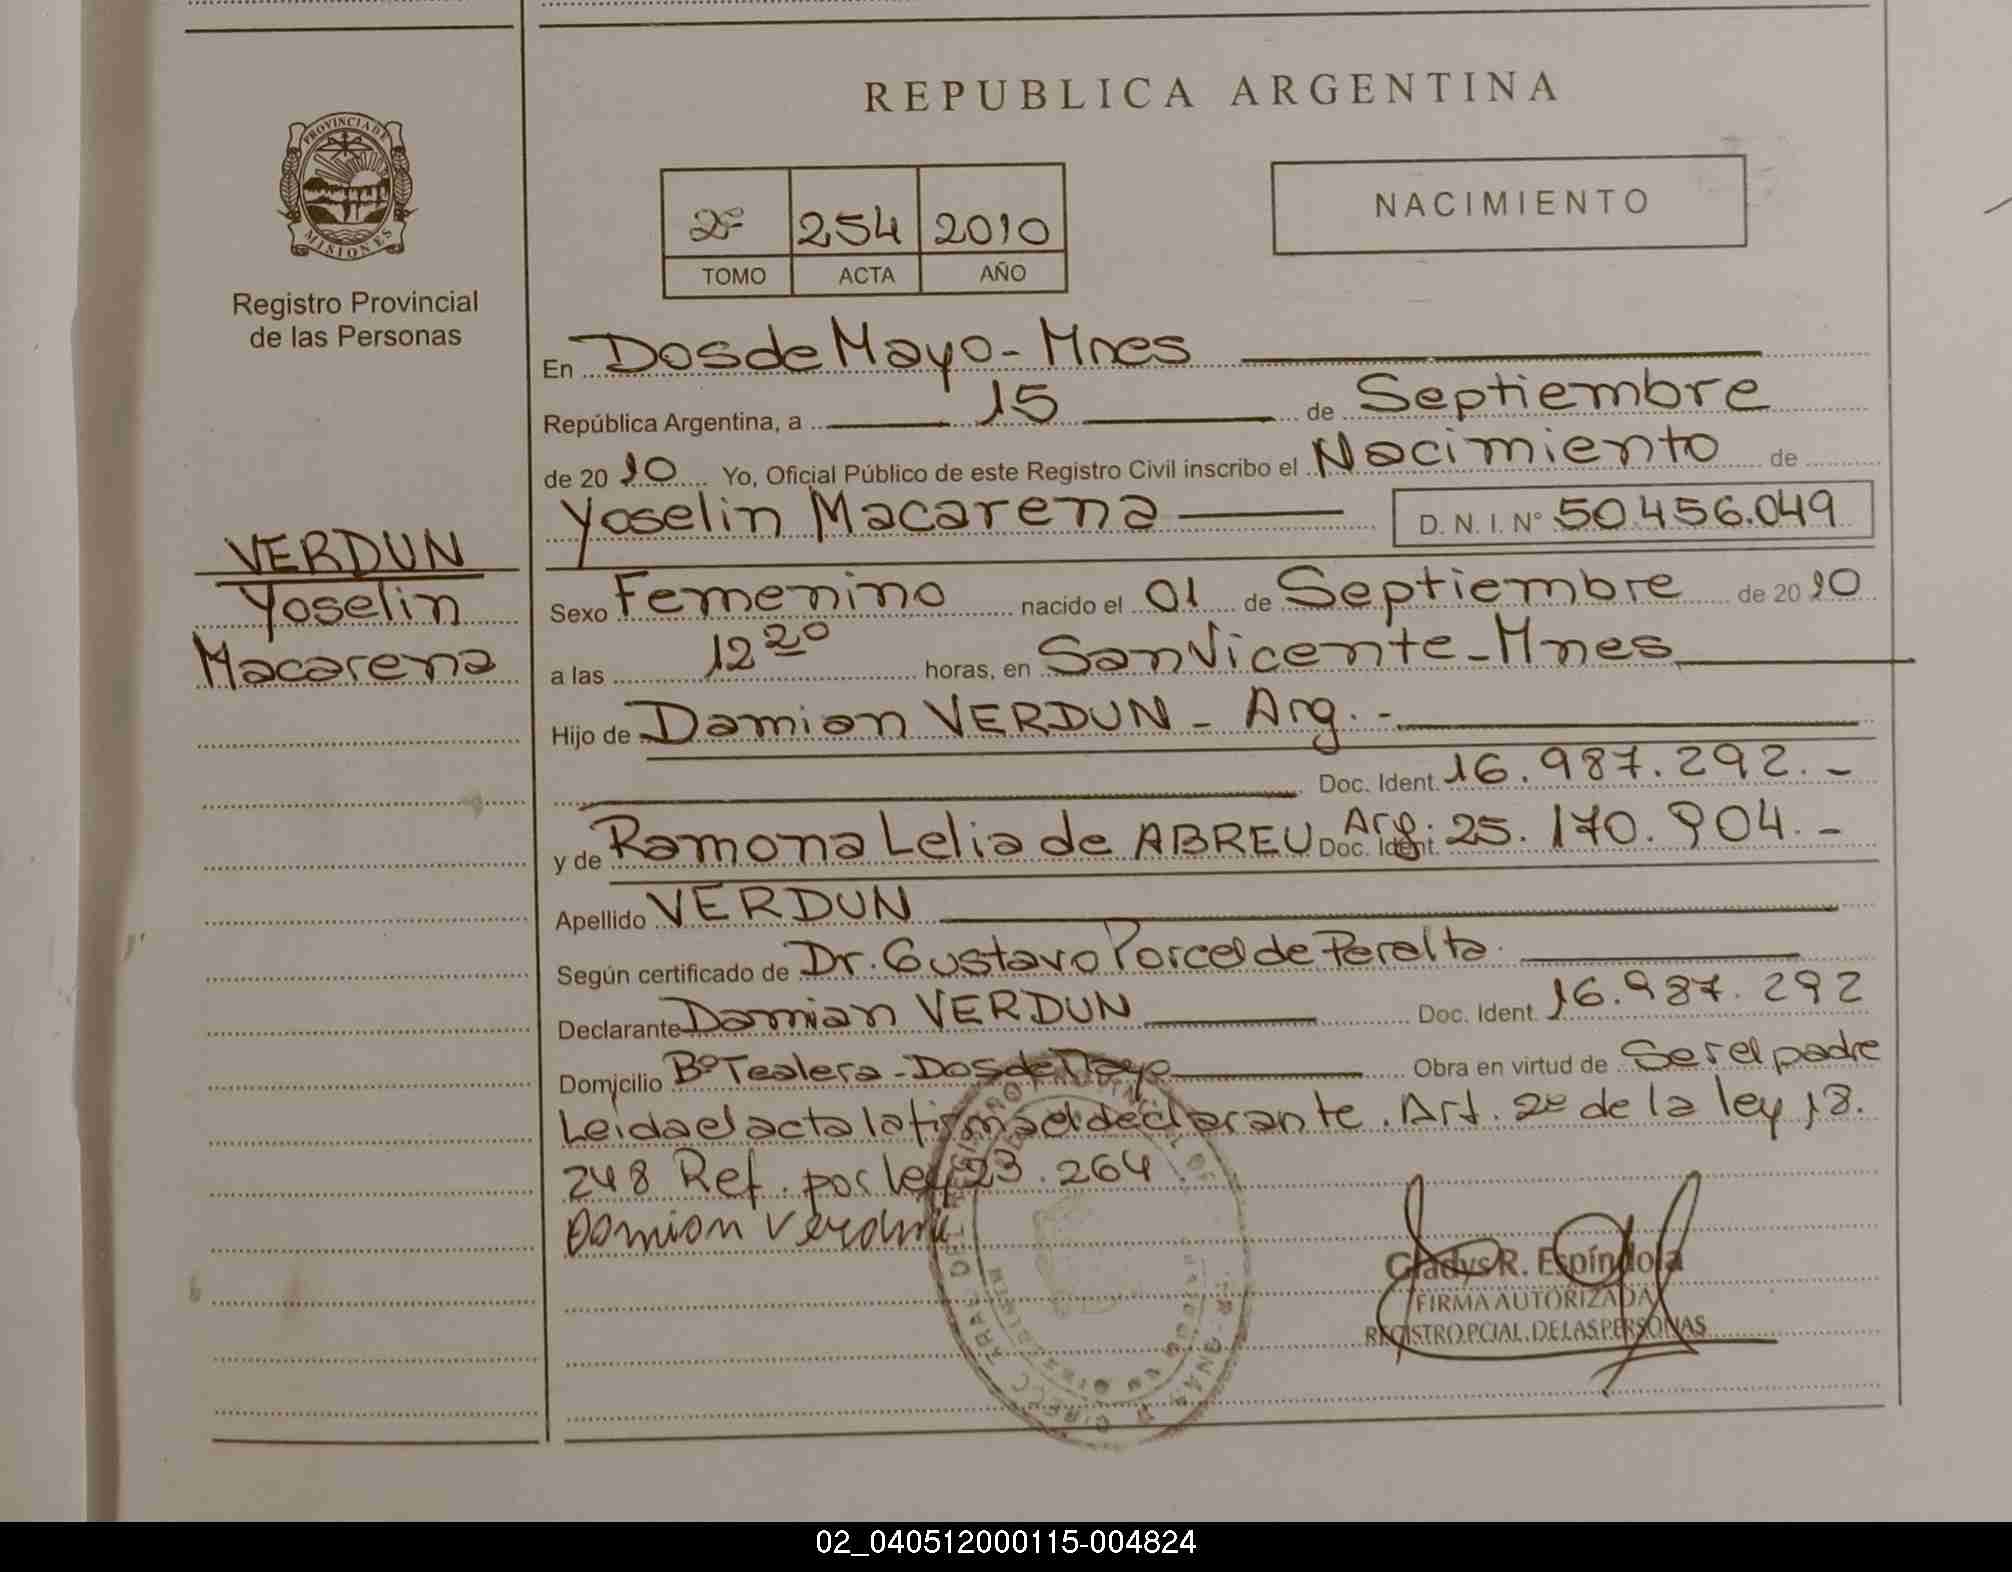 REPUBLICA ARGENTINA
PROVINCIA DE
MISIONES
Registro Provincial
de las Personas
2º 254 2010
TOMO ACTA AÑO
NACIMIENTO
VERDUN
Yoselin
Macarena
En Dos de Mayo - Mnes
República Argentina, a 15 de Septiembre
de 2010 Yo, Oficial Público de este Registro Civil inscribo el Nacimiento de
Yoselin Macarena D. N. I. Nº 50.456.049
Sexo Femenino nacido el 01 de Septiembre de 2010
a las 12 20 horas, en San Vicente - Mnes
Hijo de Damian VERDUN - Arg. -
Doc. Ident. 16.987.292. -
y de Ramona Lelia de ABREU Arg. Doc. Ident. 25.170.904. -
Apellido VERDUN
Según certificado de Dr. Gustavo Porcel de Peralta
Declarante Damian VERDUN Doc. Ident. 16.987.292
Domicilio Bº Tealera - Dos de Mayo Obra en virtud de Ser el padre
Leida el acta la firma el declarante. Art. 2º de la ley 18.
248 Ref. por ley 23.264.
Damion Verdun
Gladys R. Espíndola
FIRMA AUTORIZADA
REGISTRO PCIAL. DE LAS PERSONAS
02_040512000115-004824